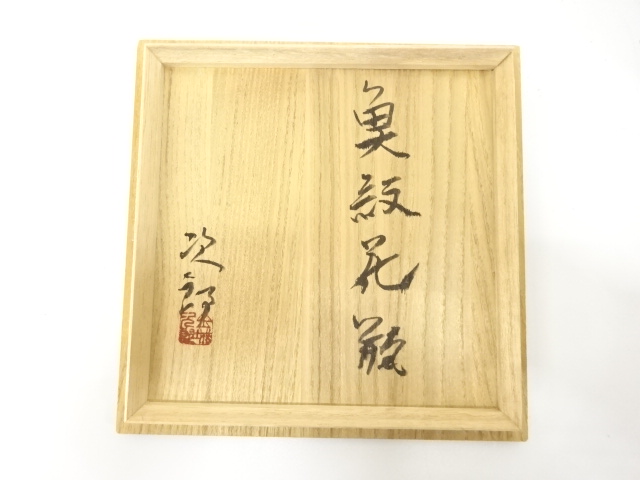 魚紋花瓶
次郎